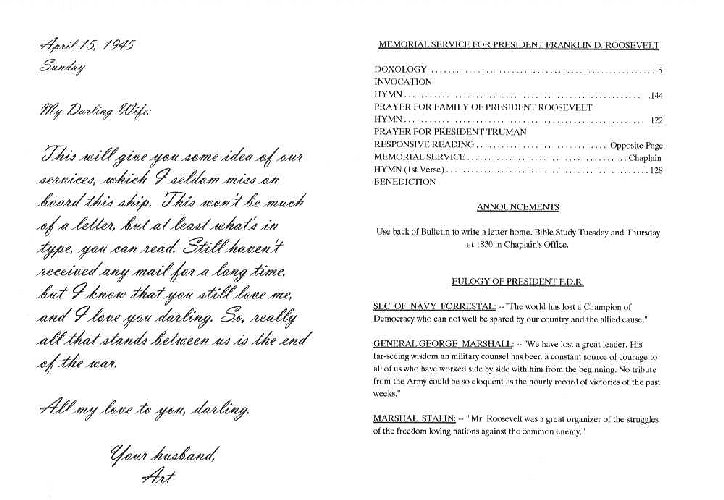 April 15, 1945
Sunday
My Darling Wife:
This will give you some idea of our
services, which I seldom miss on
board this ship. This won't be much
of a letter, but at least what's in
type, you can read. Still haven't
received any mail for a long time,
but I know that you still love me,
and I love you darling. So, really
all that stands between us is the end
of the war.
All my love to you, darling.
Your husband,
Art
MEMORIAL SERVICE FOR PRESIDENT FRANKLIN D. ROOSEVELT
DOXOLOGY ... 5
INVOCATION
HYMN ... 144
PRAYER FOR FAMILY OF PRESIDENT ROOSEVELT
HYMN ... 122
PRAYER FOR PRESIDENT TRUMAN
RESPONSIVE READING ... Opposite Page
MEMORIAL SERVICE ... Chaplain
HYMN (1st Verse) ... 128
BENEDICTION
ANNOUNCEMENTS
Use back of Bulletin to write a letter home. Bible Study Tuesday and Thursday
at 1830 in Chaplain's Office.
EULOGY OF PRESIDENT F.D.R.
SEC. OF NAVY FORRESTAL: -- "The world has lost a Champion of
Democracy who can not well be spared by our country and the allied cause."
GENERAL GEORGE MARSHALL: -- "We have lost a great leader. His
far-seeing wisdom on military counsel has been a constant source of courage to
all of us who have worked side by side with him from the beginning. No tribute
from the Army could be so eloquent as the hourly record of victories of the past
weeks."
MARSHAL STALIN: -- "Mr. Roosevelt was a great organizer of the struggles
of the freedom loving nations against the common enemy."